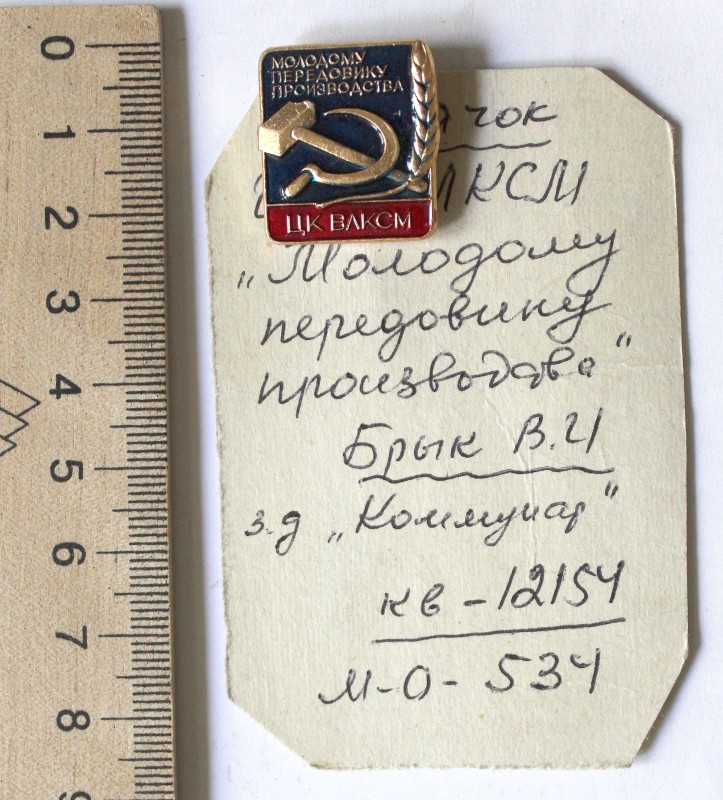 0
1
2
3
4
5
6
7
8
9
МОЛОДОМУ
ПЕРЕДОВИКУ
ПРОИЗВОДСТВА
ЦК ВЛКСМ
„Молодому
передовику
производства"
Брык В.И
з.д „Коммунар"
кв - 12154
М-О- 534